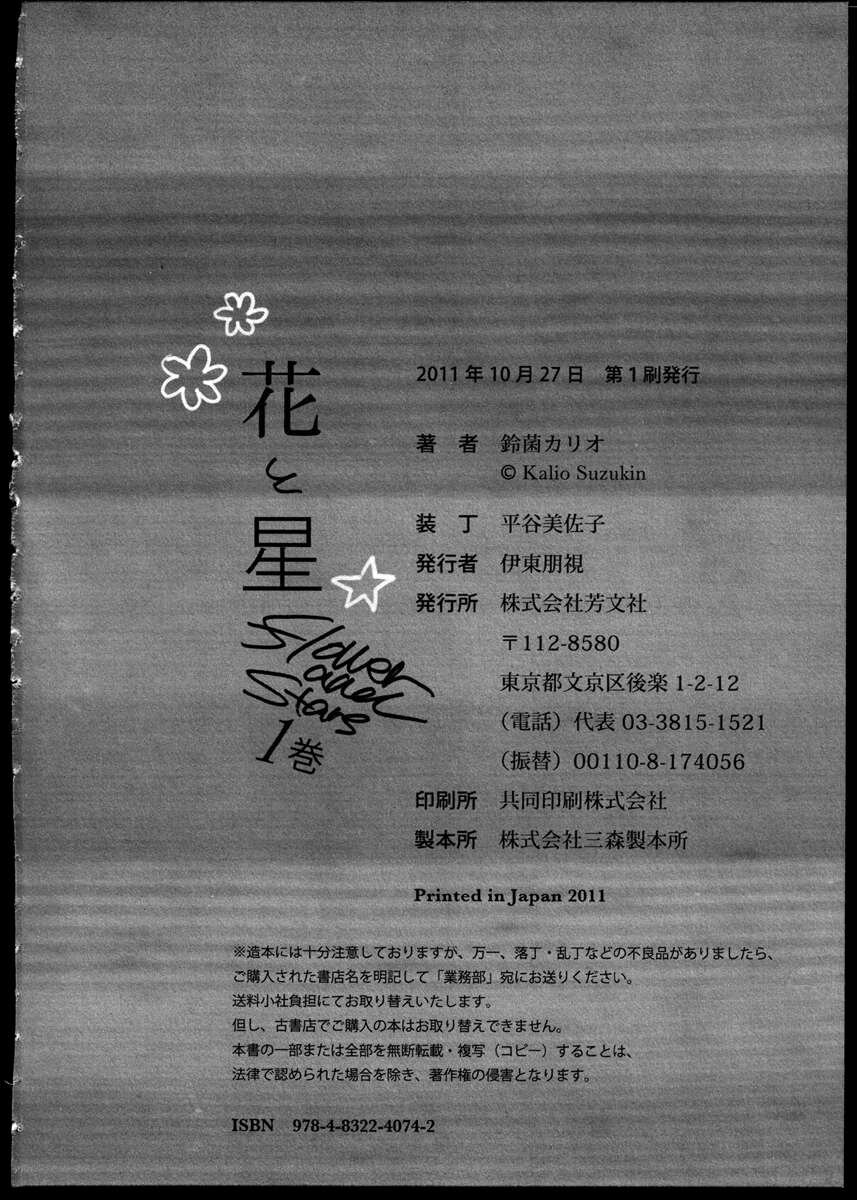 花と星
Flower and Stars
1巻
2011年10月27日　第1刷発行
著　者　鈴菌カリオ
© Kalio Suzukin
装　丁　平谷美佐子
発行者　伊東朋視
発行所　株式会社芳文社
〒112-8580
東京都文京区後楽1-2-12
（電話）代表 03-3815-1521
（振替）00110-8-174056
印刷所　共同印刷株式会社
製本所　株式会社三森製本所
Printed in Japan 2011
※造本には十分注意しておりますが、万一、落丁・乱丁などの不良品がありましたら、
ご購入された書店名を明記して「業務部」宛にお送りください。
送料小社負担にてお取り替えいたします。
但し、古書店でご購入の本はお取り替えできません。
本書の一部または全部を無断転載・複写（コピー）することは、
法律で認められた場合を除き、著作権の侵害となります。
ISBN　978-4-8322-4074-2